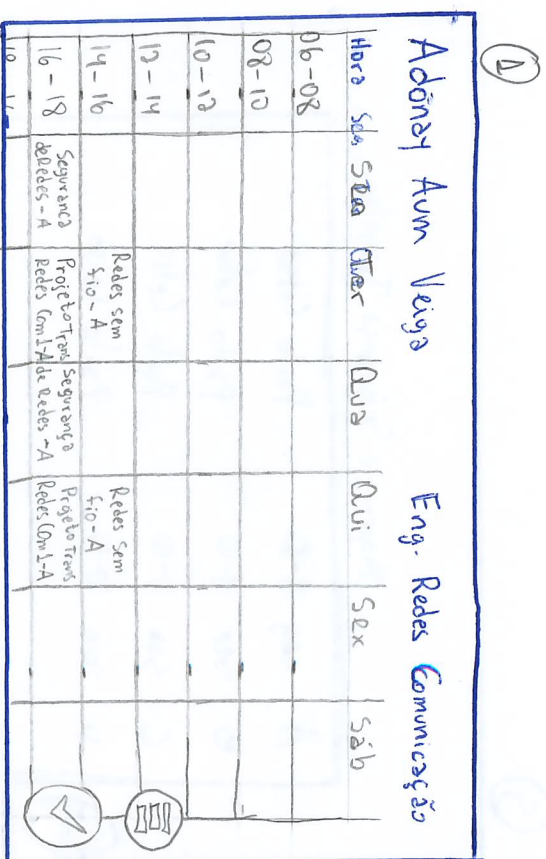 1
Adonay Aum Veiga Eng. Redes Comunicação
Hora Seg Ter Qua Qui Sex Sáb
06-08
08-10
10-12
12-14
14-16 Redes sem fio-A Redes Sem fio-A
16-18 Segurança deRedes-A Projeto Trans Redes Com1-A Segurança de Redes-A Projeto Trans Redes Com1-A